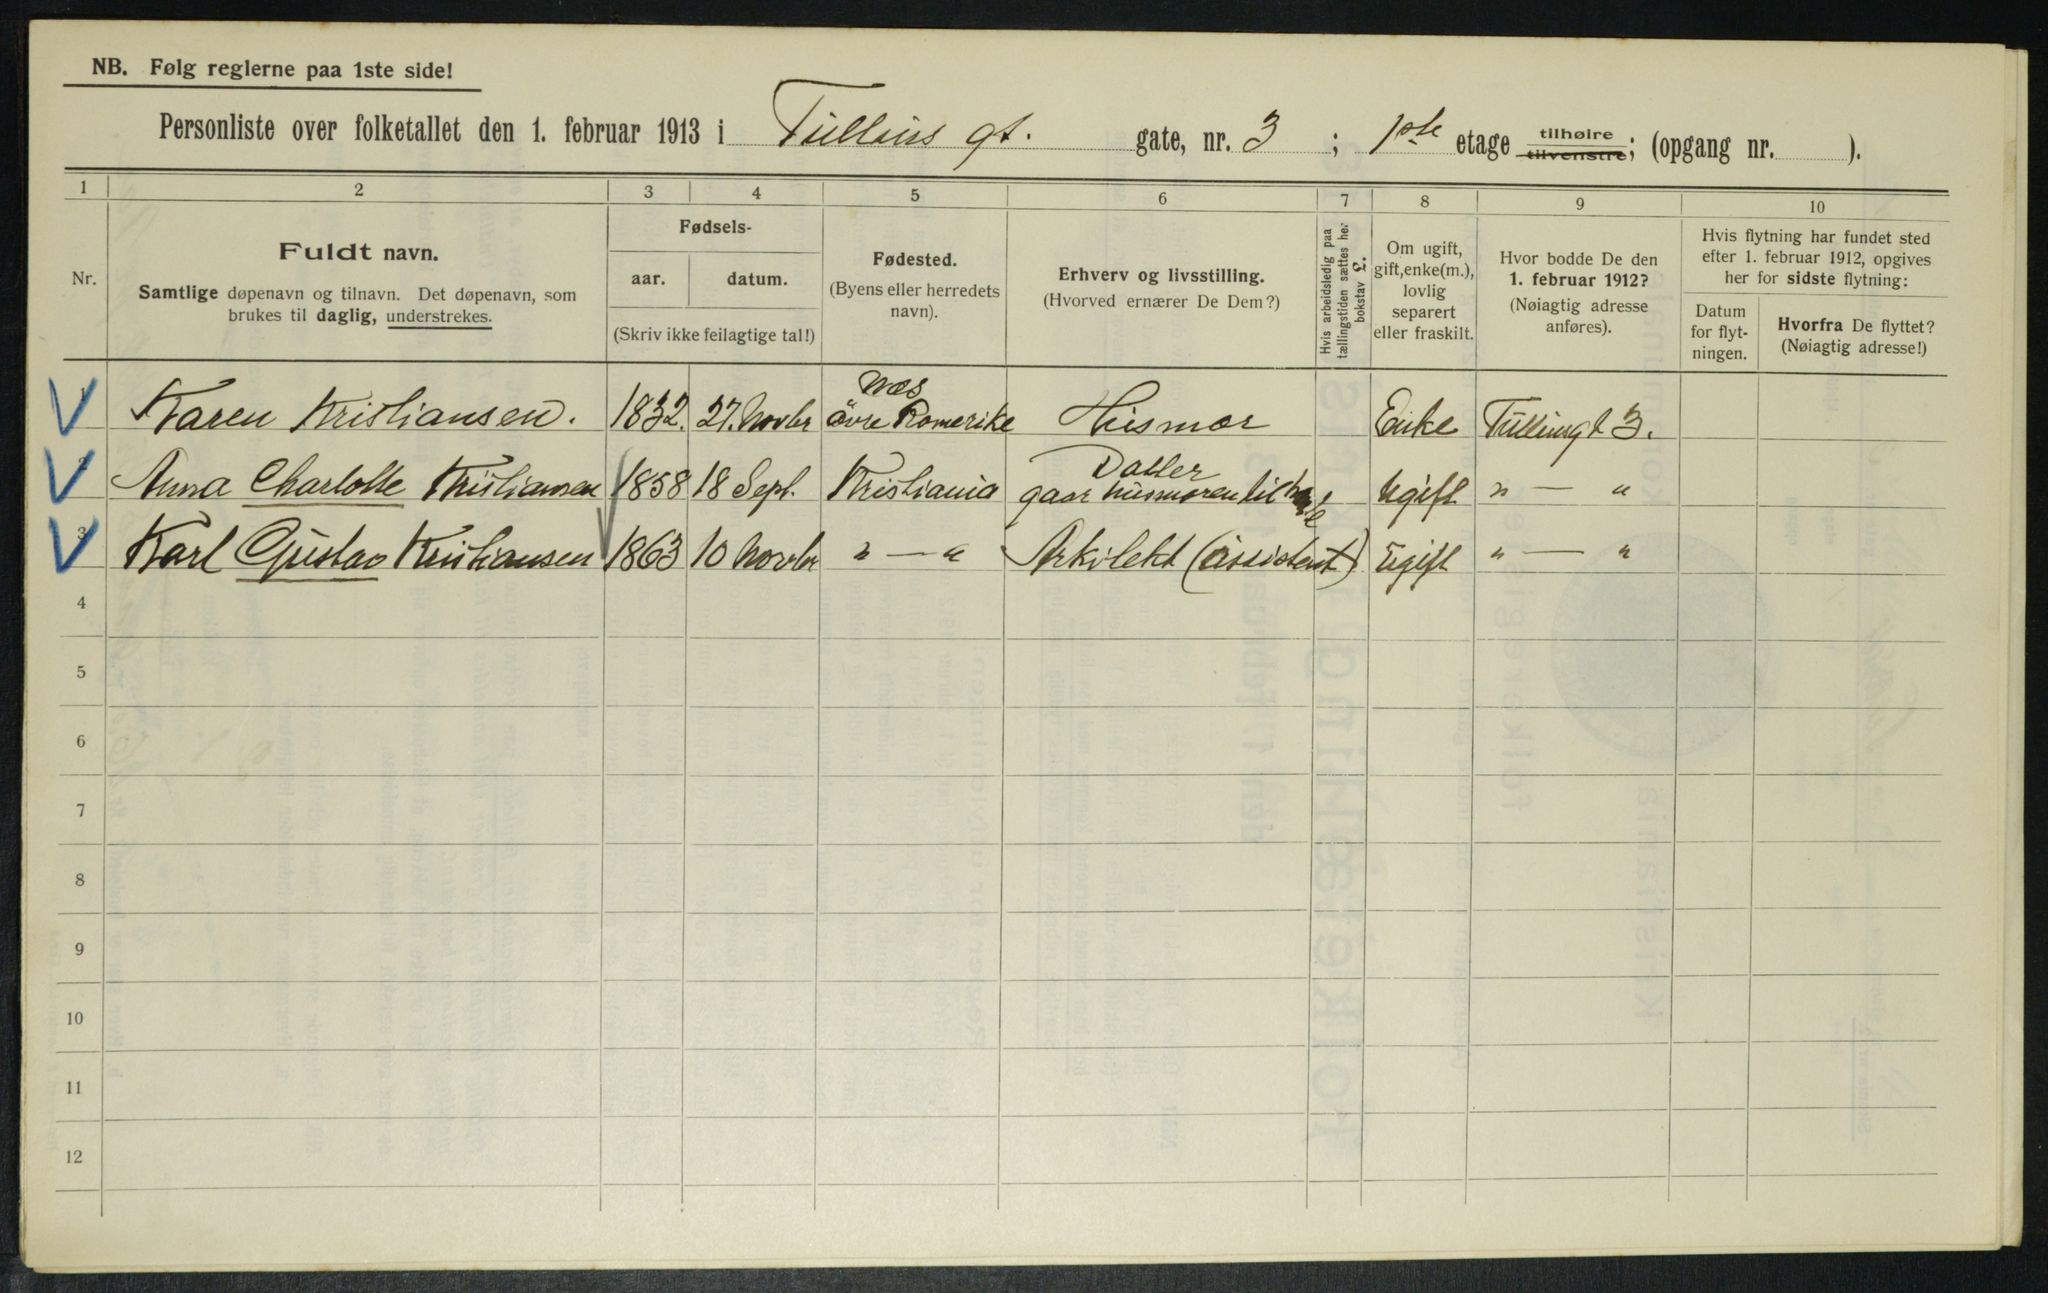 NB. Følg reglerne paa 1ste side!
Personliste over folketallet den 1. februar 1913 i Tullins gt. gate, nr. 3 ; 1ste etage tilhøire tilvenstre; (opgang nr. ).
1 2 3 4 5 6 7 8 9 10
Nr.
Fuldt navn.
Samtlige døpenavn og tilnavn. Det døpenavn, som
brukes til daglig, understrekes.
Fødsels-
aar. datum.
(Skriv ikke feilagtige tal!)
Fødested.
(Byens eller herredets
navn).
Erhverv og livsstilling.
(Hvorved ernærer De Dem?)
Hvis arbeidsledig paa
tællingstiden sættes her
bokstav L.
Om ugift,
gift, enke(m.),
lovlig
separert
eller fraskilt.
Hvor bodde De den
1. februar 1912?
(Nøiagtig adresse
anføres).
Hvis flytning har fundet sted
efter 1. februar 1912, opgives
her for sidste flytning:
Datum
for flyt-
ningen.
Hvorfra De flyttet?
(Nøiagtig adresse!)
1 Karen Kristiansen. 1832. 27. Novbr Næs övre Romerike Husmor Enke Tullinsgt 3.
2 Anna Charlotte Kristiansen 1858 18 Sept. Kristiania Datter gaar husmoren til haande Ugift " — "
3 Karl Gustav Kristiansen 1863 10 Novbr " — " Arkitekt (assistent) Ugift " — "
4
5
6
7
8
9
10
11
12